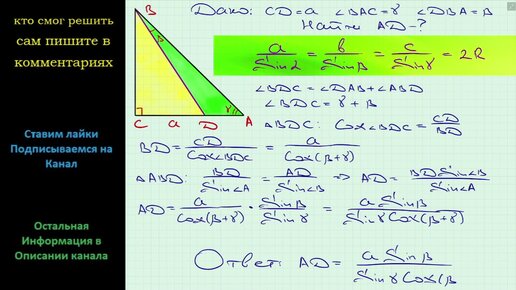 кто смог решить
сам пишите в
комментариях
Ставим лайки
Подписываемся на
Канал
Остальная
Информация в
Описании канала
B
β
γ
C a D A
Дано: CD=a ∠BAC=γ ∠DBA=β
Найти AD-?
a/Sinα = b/Sinβ = c/Sinγ = 2R
∠BDC = ∠DAB+∠ABD
∠BDC = γ + β
△BDC: Cos∠BDC = CD/BD
BD = CD/Cos∠BDC = a/Cos(β+γ)
△ABD: BD/Sin∠A = AD/Sin∠B ⇒ AD = BD Sin∠B/Sin∠A
AD = a/Cos(β+γ) · Sinβ/Sinγ = a Sinβ/Sinγ Cos(β+γ)
Ответ: AD = a Sinβ/Sinγ Cos(β